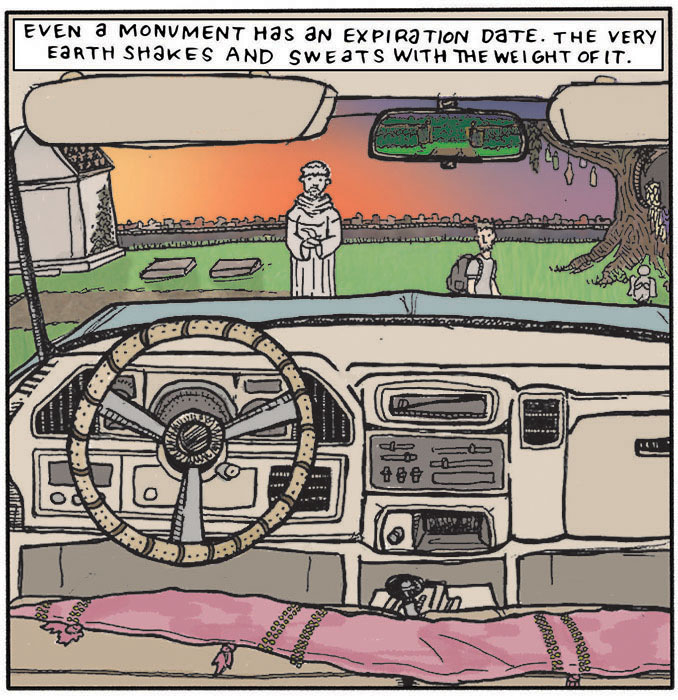 EVEN a MONUMENT HaS aN EXPIRATION DATE. THE VERY
EaRTH SHaKES AND SWEATS WITH THE WEIGHT OF IT.